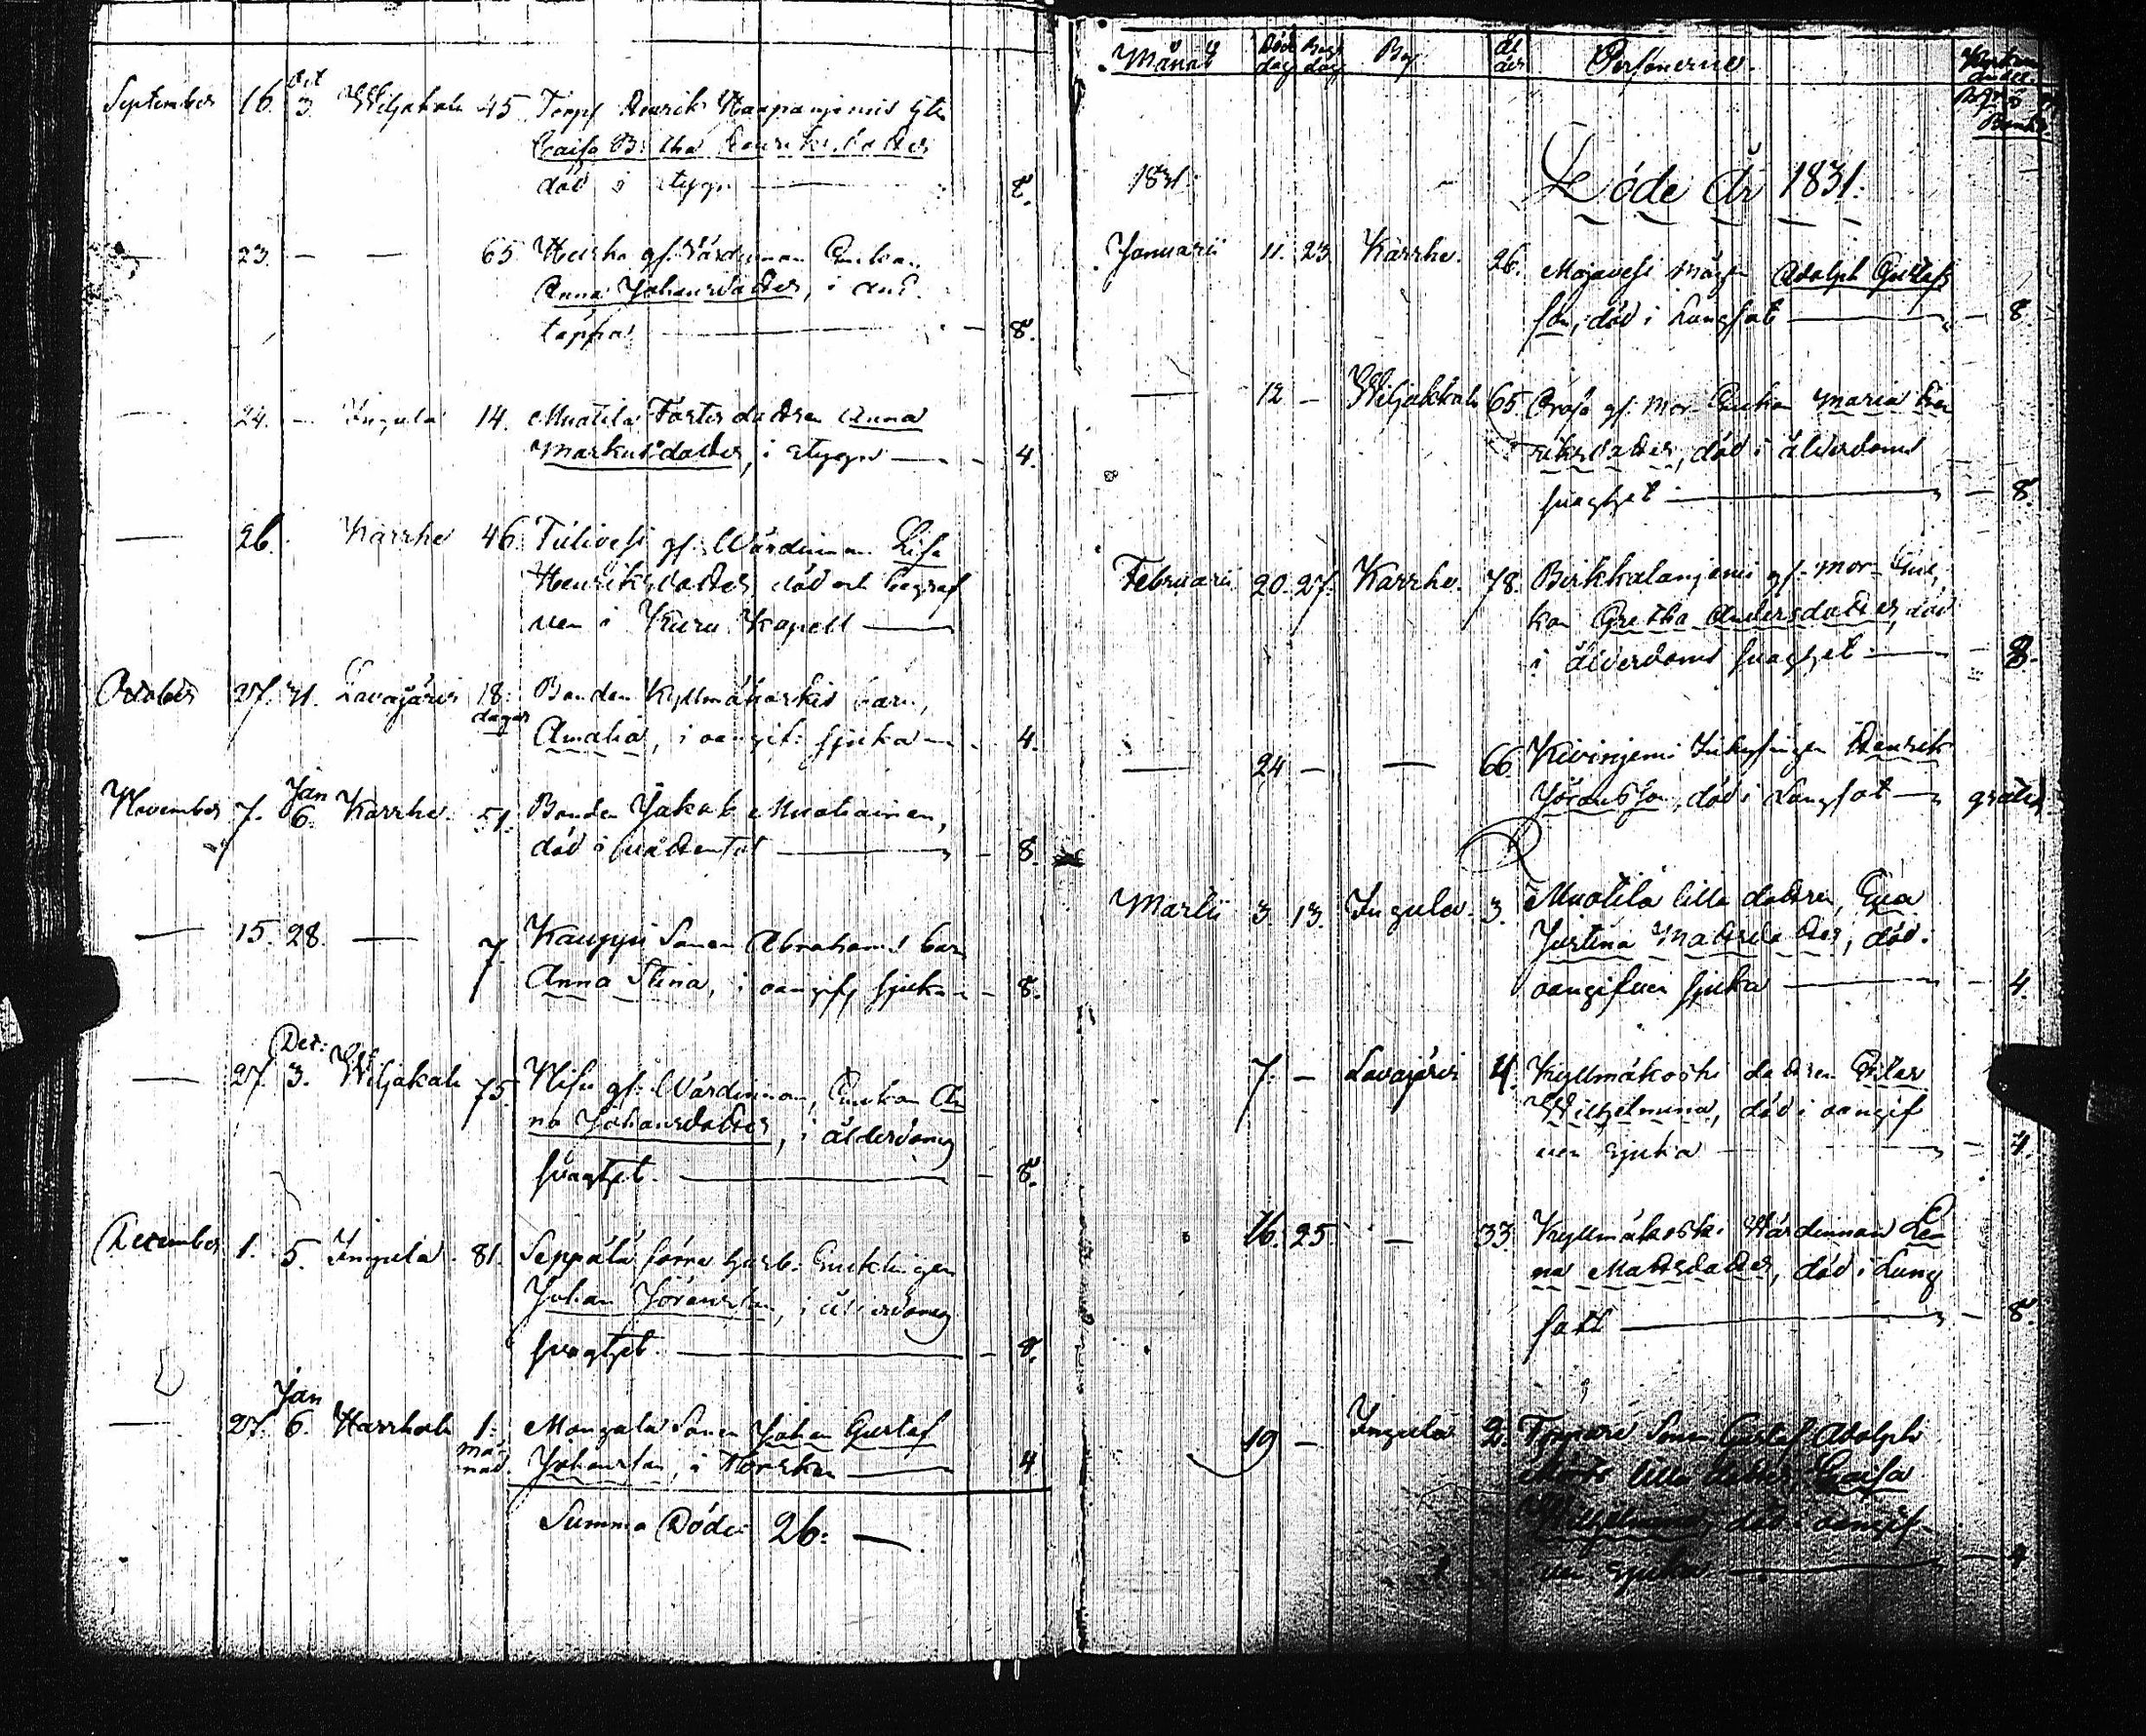 September 16. Oct 3. Wiljakala 45. Torp. Henrik Haapaniemis
Caisa Britha Henriksdotter
död i styggn 8.
23. — — 65 gf. Värdinnan Enkan
Anna Johansdotter, i and-
täppa 8.
— 24. — Ingula 14. Muotila dottren Anna
Markusdotter, i styggn 4.
— 26. Karrhe 46. gf. Wärdinnan Lisa
Henriksdotter död och begraf
ven i Kuru Kapell
October 27. 31. Lavajärvi 18. dagar Bonden Kyllmäkoskis barn,
Amalia, i oangif: sjuka 4.
November 7. Jan 6. Karrhe. 51. Bonden Jakob
död i 8.
— 15. 28. — 7. Kauppi Sonen Abrahams barn
Anna Stina, i oangif sjuka 8.
— 27. Dec: 3. Wiljakala 75. gf. Wärdinnan, Enkan An
na Johansdotter, i ålderdoms
svaghet. 8.
December 1. 5. Ingula 81. Seppälä förre husb. Enklingen
Johan Jöransson, i ålderdoms
svaghet. 8.
— 27. Jan 6. Harrhala 1. må-
nad. Sonen Johan Gustaf
Johansson, i 4
Summa Döde: 26: —
Månad Död dag Begr dag By ål der Personerne.
1831. Döde År 1831.
Januarii 11. 23 Karrhe. 26. Majavesi mågen Adolph Gustafs
son, död i Lungsot 8.
— 12 — Wiljakkala 65 gf. Mor Enkan Maria Hen
riksdotter, död i ålderdoms
svaghet 8.
Februarii 20. 27. Karrhe. 78. Pirkkalaniemi gf. Mor Enk
kan Gretha Andersdotter, död
i ålderdoms svaghet 8.
— 24 — — 66 Kivinjemi Inhysingen Henrik
Jöransson, död i Lungsot gratis
Martii 3. 13. Ingula. 3. Muotila lilla dottren, Eva
Justina Mattsdotter, död i
oangifven sjuka 4.
7. — Lavajärvi 4. Kyllmäkoski dottren
Wilhelmina, död i oangif
ven sjuka 4.
16. 25. — 33. Kyllmäkoski Wärdinnan Le
na Mattsdotter, död i Lung
sott 8.
19 — Ingula 2. Sonen Gustaf Adolph
lilla dotter, Caisa
Wilhelmina, död i oangif-
ven sjuka 4